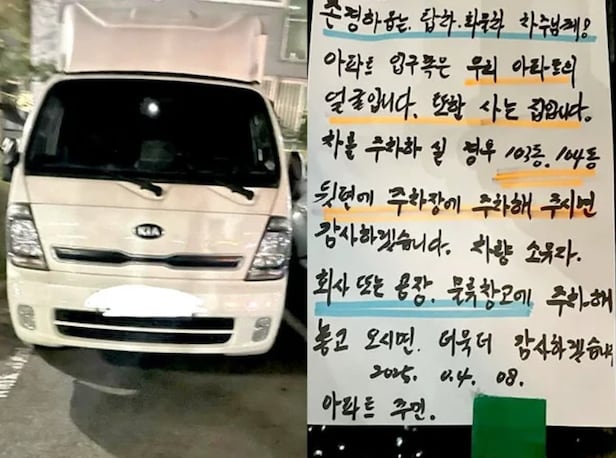 KIA
존경하옵는, 탑차.화물차 차주님께!
아파트 입구쪽은 우리 아파트의
얼굴입니다. 또한 사는 집입니다.
차를 주차하 실 경우 103동. 104동
뒷면에 주차장에 주차해 주시면
감사하겠습니다. 차량 소유자.
회사 또는 공장. 물류창고에 주차해
놓고 오시면. 더욱더 감사하겠습니다
2025. 0.4. 08.
아파트 주민.